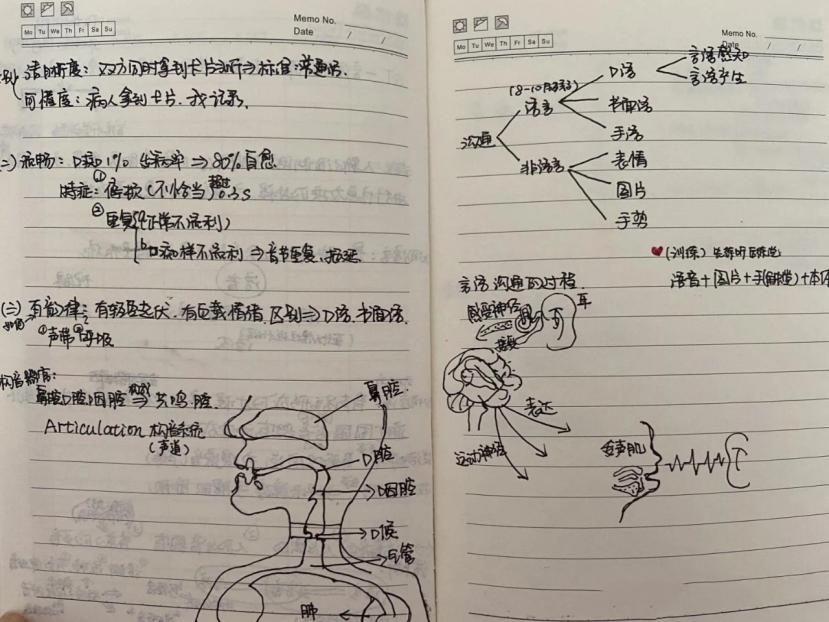 Memo No.
Date / /
Mo Tu We Th Fr Sa Su
清晰度：双方同时拿到卡片分析⇒标准：普通话.
可懂度：病人拿到卡片.我记录.
(二)流畅：口吃1% 发病率⇒80%自愈
特征：①停顿(不恰当)超过0.3s
②重复 a(正常不流利)
b 口吃样不流利⇒音节重复、拖延
(三)有韵律：有轻重起伏.有包含情绪 区别⇒口语.书面语.
①声带②呼吸
构音器官：
鼻腔口腔咽腔 构成⇒共鸣腔.
鼻腔.
Articulation 构音系统
(声道)
口腔
口咽腔
口喉
气管
肺
Memo No.
Date / /
Mo Tu We Th Fr Sa Su
沟通
语言
口语
言语感知
言语产生
书面语
手语
非语言
表情
图片
手势
♥(训练)
语音+图片+手
言语沟通的过程.
感受神经
耳
表达
运动神经
发声肌